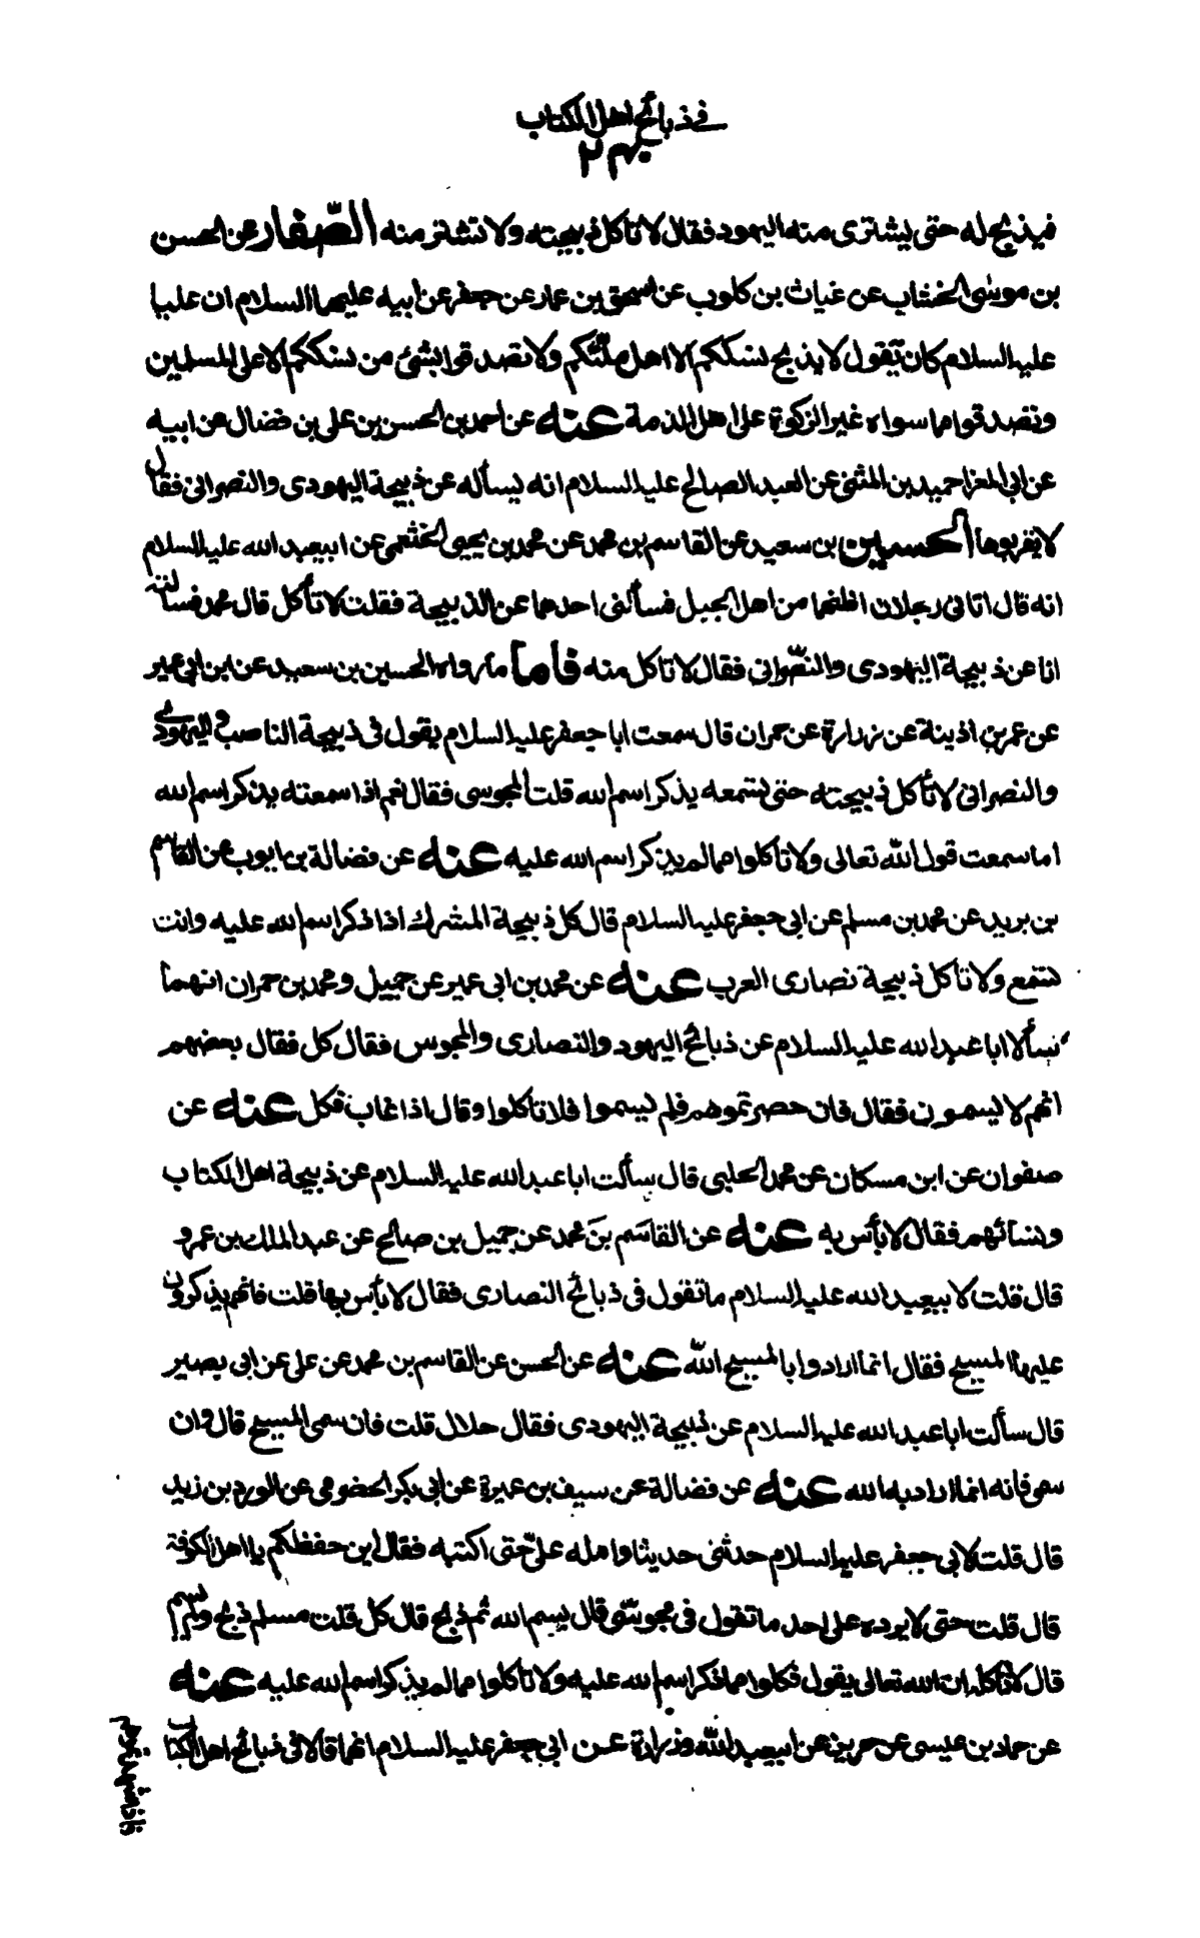 في ذبائح اهل الكتاب
فيذبح له حتى يشترى منه اليهود فقال لا تأكل ذبيحته ولا تشتر منه الصّفار عن الحسن
بن موسى الخشاب عن غياث بن كلوب عن اسحق بن عمار عن جعفر عن ابيه عليهما السلام ان عليا
عليه السلام كان يقول لا يذبح نسككم الا اهل ملّتكم ولا تصدقوا بشئ من نسككم الا على المسلمين
وتصدقوا مما سواه غير الزكوة على اهل الذمة عنه عن احمد بن الحسن بن على بن فضال عن ابيه
عن ابى المغرا حميد بن المثنى عن العبد الصالح عليه السلام انه يسأله عن ذبيحة اليهودى والنصرانى فقال
لا تقربوها الحسين بن سعيد عن القاسم بن محمد عن محمد بن يحيى الخثعمى عن ابيعبد الله عليه السلام
انه قال اتانى رجلان اظنهما من اهل الجبل فسألنى احدهما عن الذبيحة فقلت لا تأكل قال محمد فسألته
انا عن ذبيحة اليهودى والنصّرانى فقال لا تأكل منه فاما ما رواه الحسين بن سعيد عن ابن ابى عمير
عن عمر بن اذينة عن زرارة عن حمران قال سمعت ابا جعفر عليه السلام يقول فى ذبيحة الناصب واليهودى
والنصرانى لا تأكل ذبيحته حتى تسمعه يذكر اسم الله قلت المجوسى فقال نعم اذا سمعته يذكر اسم الله
اما سمعت قول الله تعالى ولا تأكلوا مما لم يذكر اسم الله عليه عنه عن فضالة بن ايوب عن القاسم
بن بريد عن محمد بن مسلم عن ابى جعفر عليه السلام قال كل ذبيحة المشرك اذا ذكر اسم الله عليه وانت
تسمع ولا تأكل ذبيحة نصارى العرب عنه عن محمد بن ابى عمير عن جميل ومحمد بن حمران انهما
سألا ابا عبد الله عليه السلام عن ذبائح اليهود والنصارى والمجوس فقال كل فقال بعضهم
انهم لا يسمون فقال فان حضرتموهم فلم يسموا فلا تأكلوا وقال اذا غاب فكل عنه عن
صفوان عن ابن مسكان عن محمد الحلبى قال سألت ابا عبد الله عليه السلام عن ذبيحة اهل الكتاب
ونسائهم فقال لا بأس به عنه عن القاسم بن محمد عن جميل بن صالح عن عبد الملك بن عمرو
قال قلت لابيعبد الله عليه السلام ما تقول فى ذبائح النصارى فقال لا بأس بها قلت فانهم يذكرون
عليها المسيح فقال انما ارادوا بالمسيح اللّه عنه عن الحسن عن القاسم بن محمد عن على عن ابى بصير
قال سألت ابا عبد الله عليه السلام عن ذبيحة اليهودى فقال حلال قلت فان سمى المسيح قال وان
سمى فانه انما اراد به الله عنه عن فضالة عن سيف بن عميرة عن ابى بكر الحضرمى عن الورد بن زيد
قال قلت لابى جعفر عليه السلام حدثنى حديثا وامله علىّ حتى اكتبه فقال اين حفظكم يا اهل الكوفة
قال قلت حتى لا يرده على احد ما تقول فى مجوسىّ قال بسم الله ثم ذبح قال كل قلت مسلم ذبح ولم يسم
قال لا تأكل ان الله تعالى يقول فكلوا مما ذكر اسم الله عليه ولا تأكلوا مما لم يذكر اسم الله عليه عنه
عن حماد بن عيسى عن حريز عن ابيعبد اللّه وزرارة عن ابى جعفر عليه السلام انهما قالا فى ذبائح اهل الكتاب